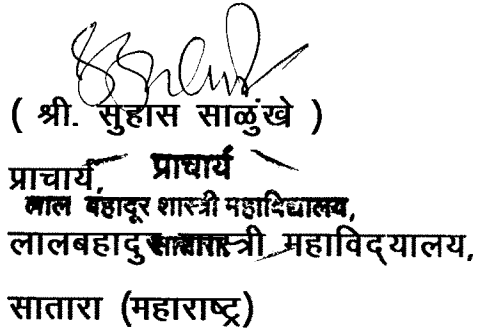 ( श्री. सुहास साळुंखे )
प्राचार्य, प्राचार्य
लाल बहादूर शास्त्री महाविद्यालय,
लालबहादुर शास्त्री महाविद्यालय,
सातारा (महाराष्ट्र)